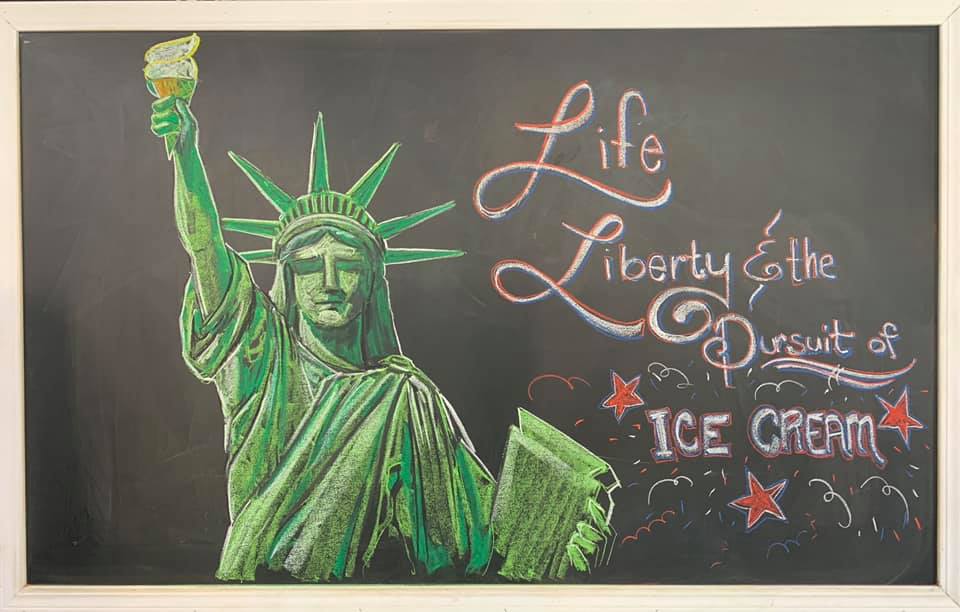 Life
Liberty & the
Pursuit of
ICE CREAM